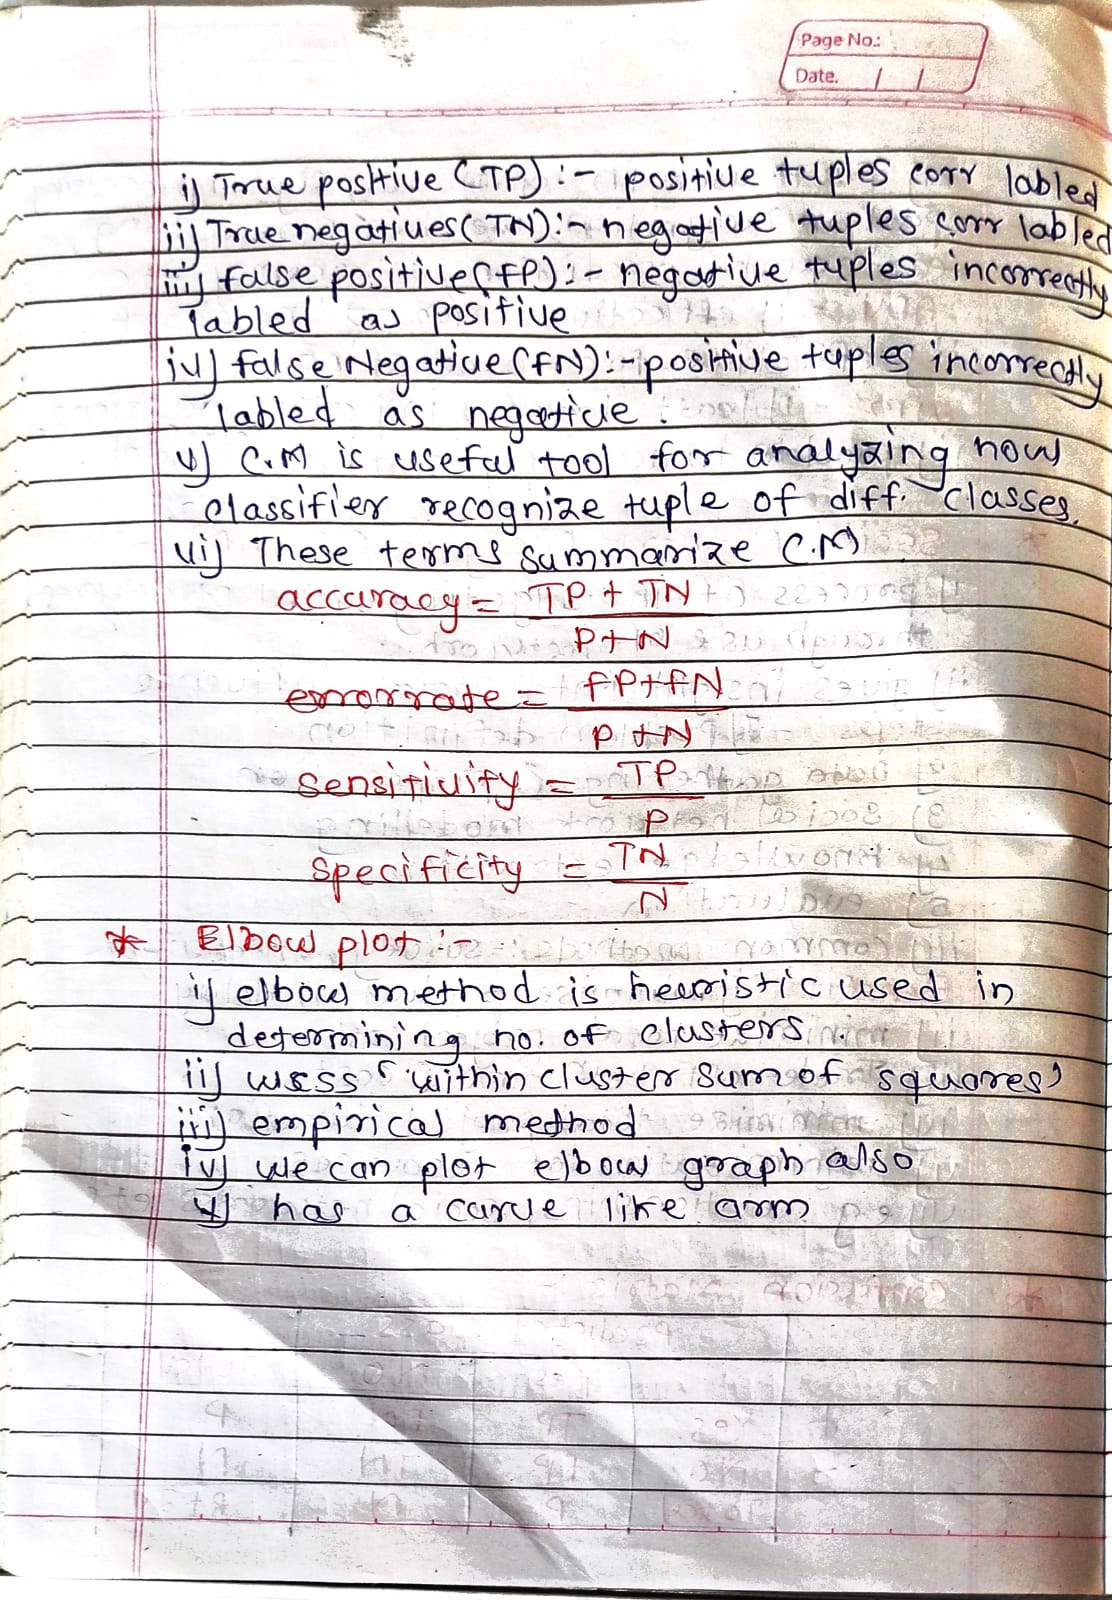 Page No.:
Date. / /
i) True positive (TP) :- positive tuples corr labled
ii) True negatives (TN) :- negative tuples corr labled
iii) false positive (fP) :- negative tuples incorrectly
labled as positive
iv) false Negative (fN) :- positive tuples incorrectly
labled as negative.
v) C.M is useful tool for analyzing how
classifier recognize tuple of diff. classes.
vi) These terms summarize C.M
accuracy = TP + TN
P+N
error rate = fP+fN
P+N
Sensitivity = TP
P
Specificity = TN
N
* Elbow plot :-
i) elbow method is heuristic used in
determining no. of clusters.
ii) wcss 'within cluster sum of squares'
iii) empirical method
iv) we can plot elbow graph also
v) has a curve like arm